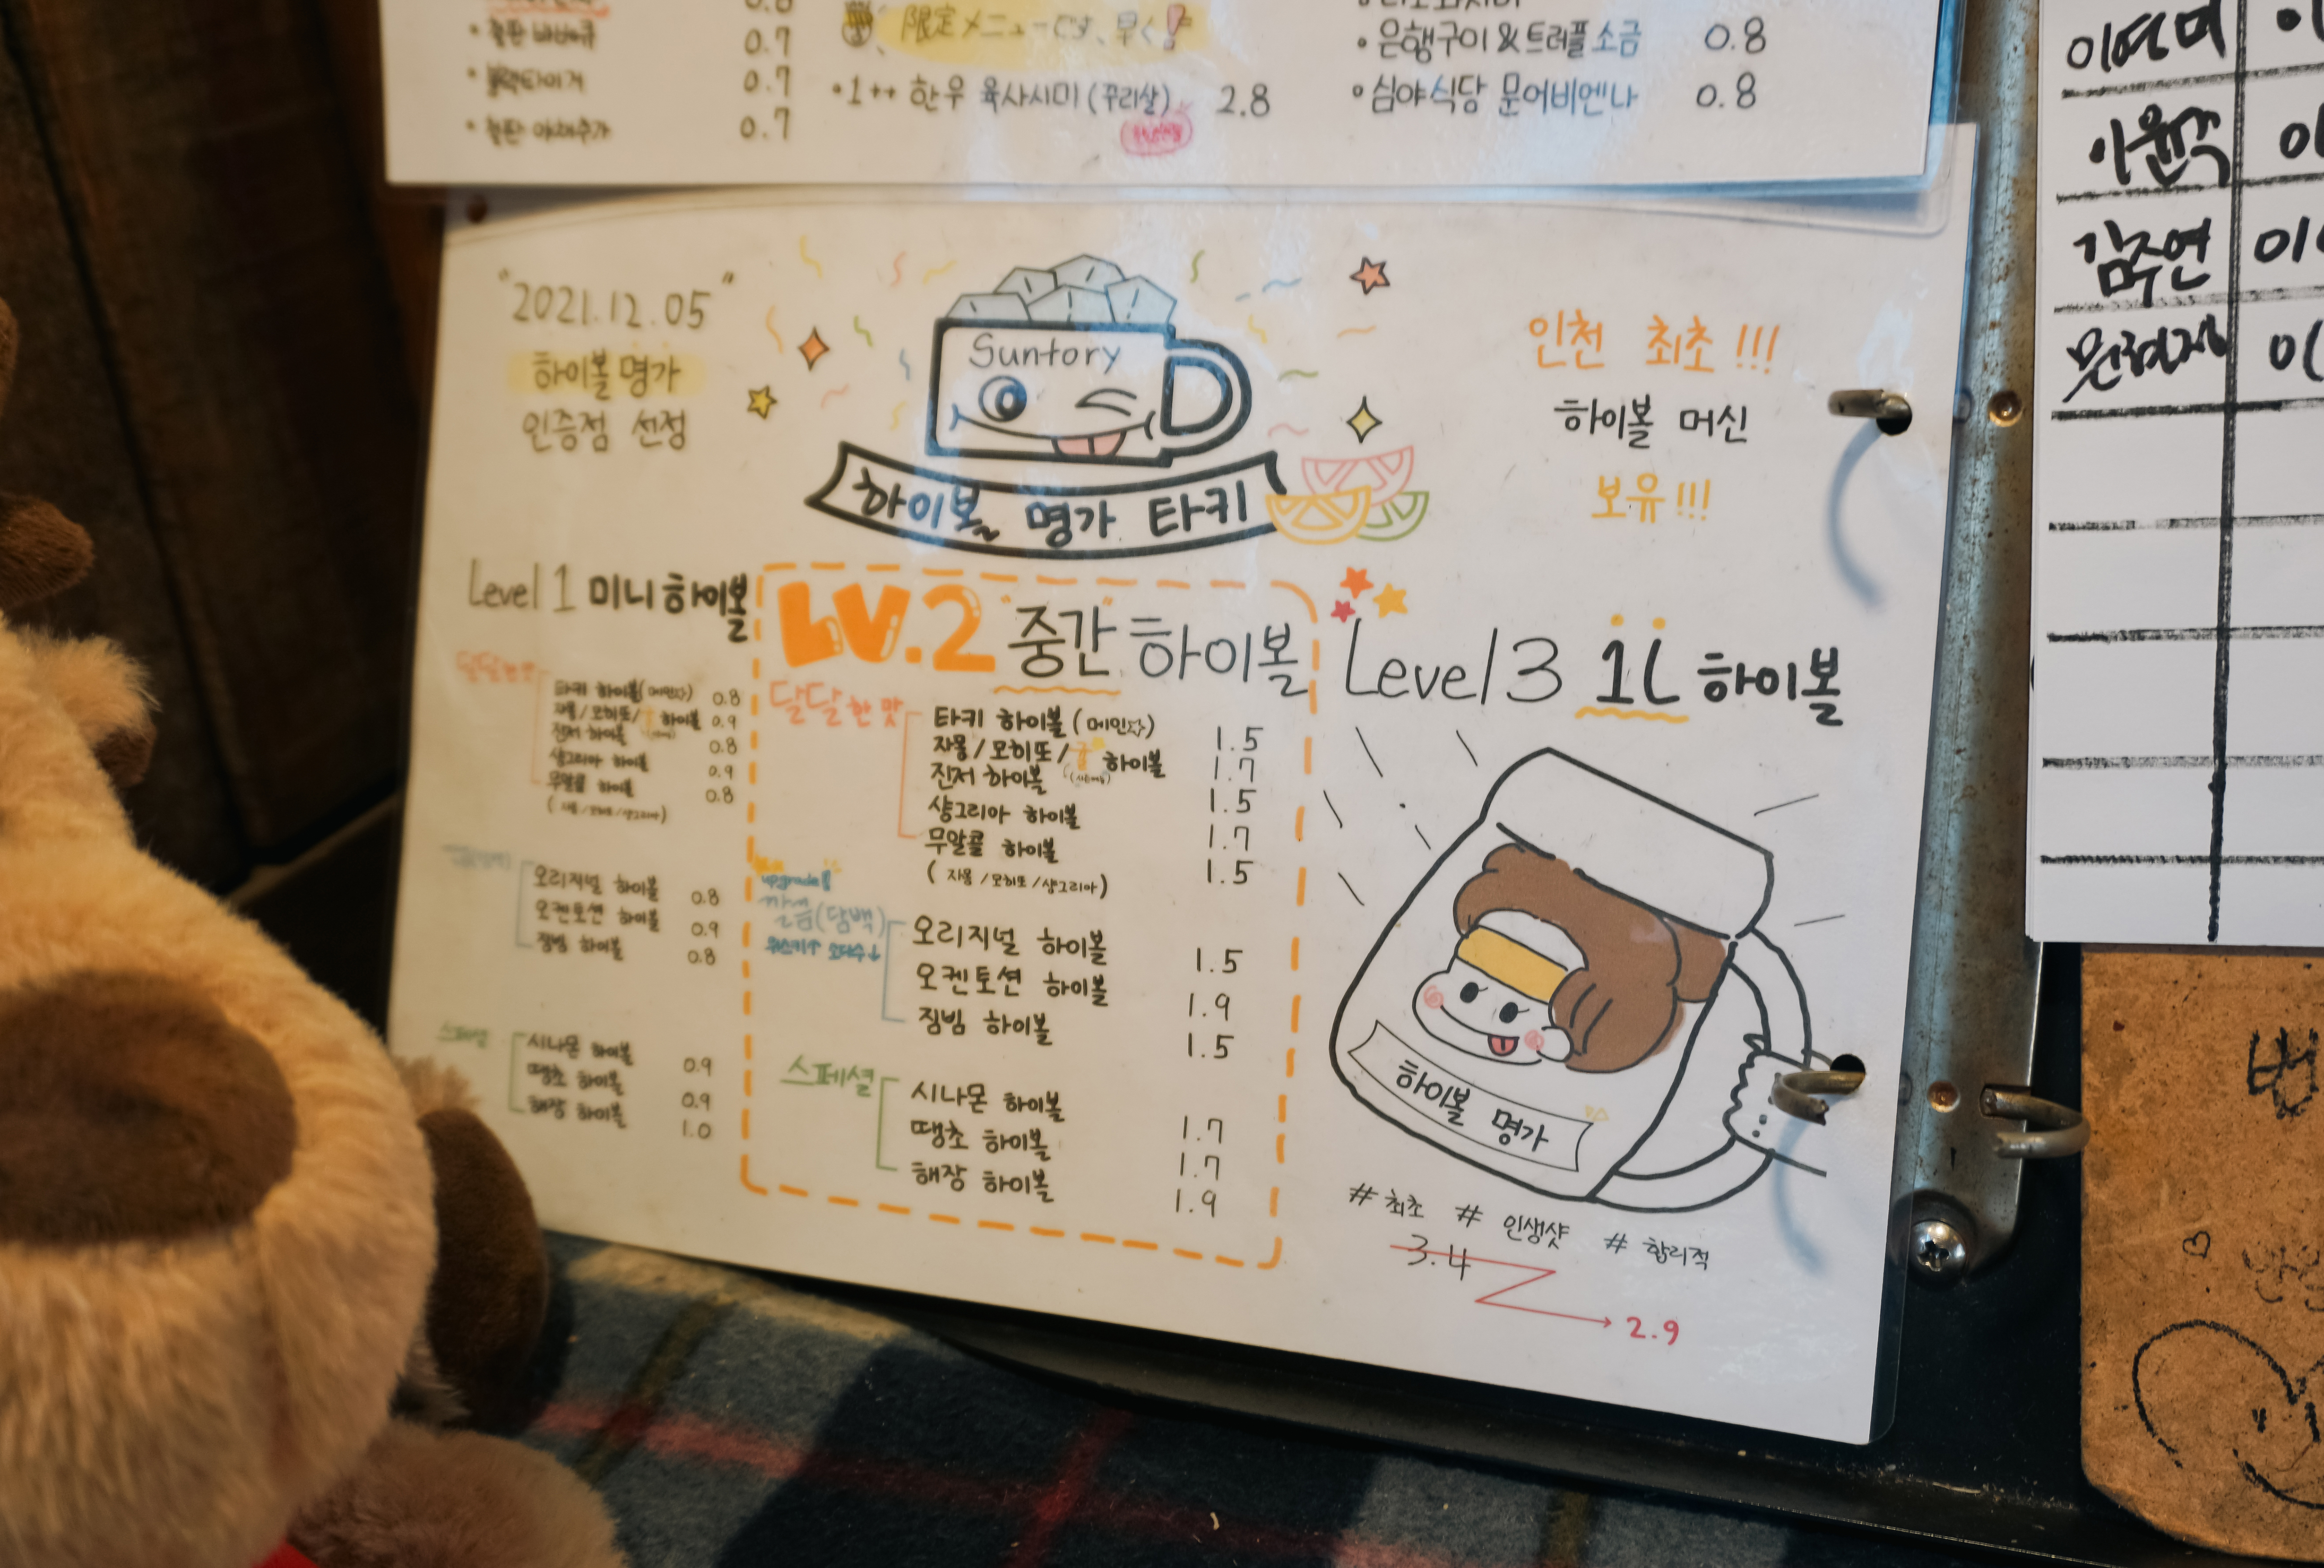 0.8
0.7
• 블랙타이거 0.7
• 철판 야채추가 0.7
限定メニューです、早く!
• 1++ 한우 육사시미 (꾸리살) 2.8
• 은행구이 & 트러플 소금 0.8
• 심야식당 문어비엔나 0.8
"2021.12.05"
하이볼 명가
인증점 선정
Suntory
하이볼 명가 타키
인천 최초!!!
하이볼 머신
보유!!!
Level 1 미니 하이볼
타키 하이볼 (메인☆) 0.8
자몽/모히또/ 하이볼 0.9
진저 하이볼 0.8
샹그리아 하이볼 0.9
무알콜 하이볼 0.8
(자몽/모히또/샹그리아)
오리지널 하이볼 0.8
오켄토션 하이볼 0.9
짐빔 하이볼 0.8
스페셜
시나몬 하이볼 0.9
땡초 하이볼 0.9
해장 하이볼 1.0
LV.2 "중간" 하이볼
달달한 맛
타키 하이볼 (메인☆) 1.5
자몽/모히또/귤 하이볼 1.7
진저 하이볼 1.5
샹그리아 하이볼 1.7
무알콜 하이볼 1.5
(자몽/모히또/샹그리아)
upgrade!
깔끔(담백)
위스키↑ 토닉↓
오리지널 하이볼 1.5
오켄토션 하이볼 1.9
짐빔 하이볼 1.5
스페셜
시나몬 하이볼 1.7
땡초 하이볼 1.7
해장 하이볼 1.9
Level 3 1L 하이볼
하이볼 명가
#최초 #인생샷 #합리적
3.4
2.9
김주연